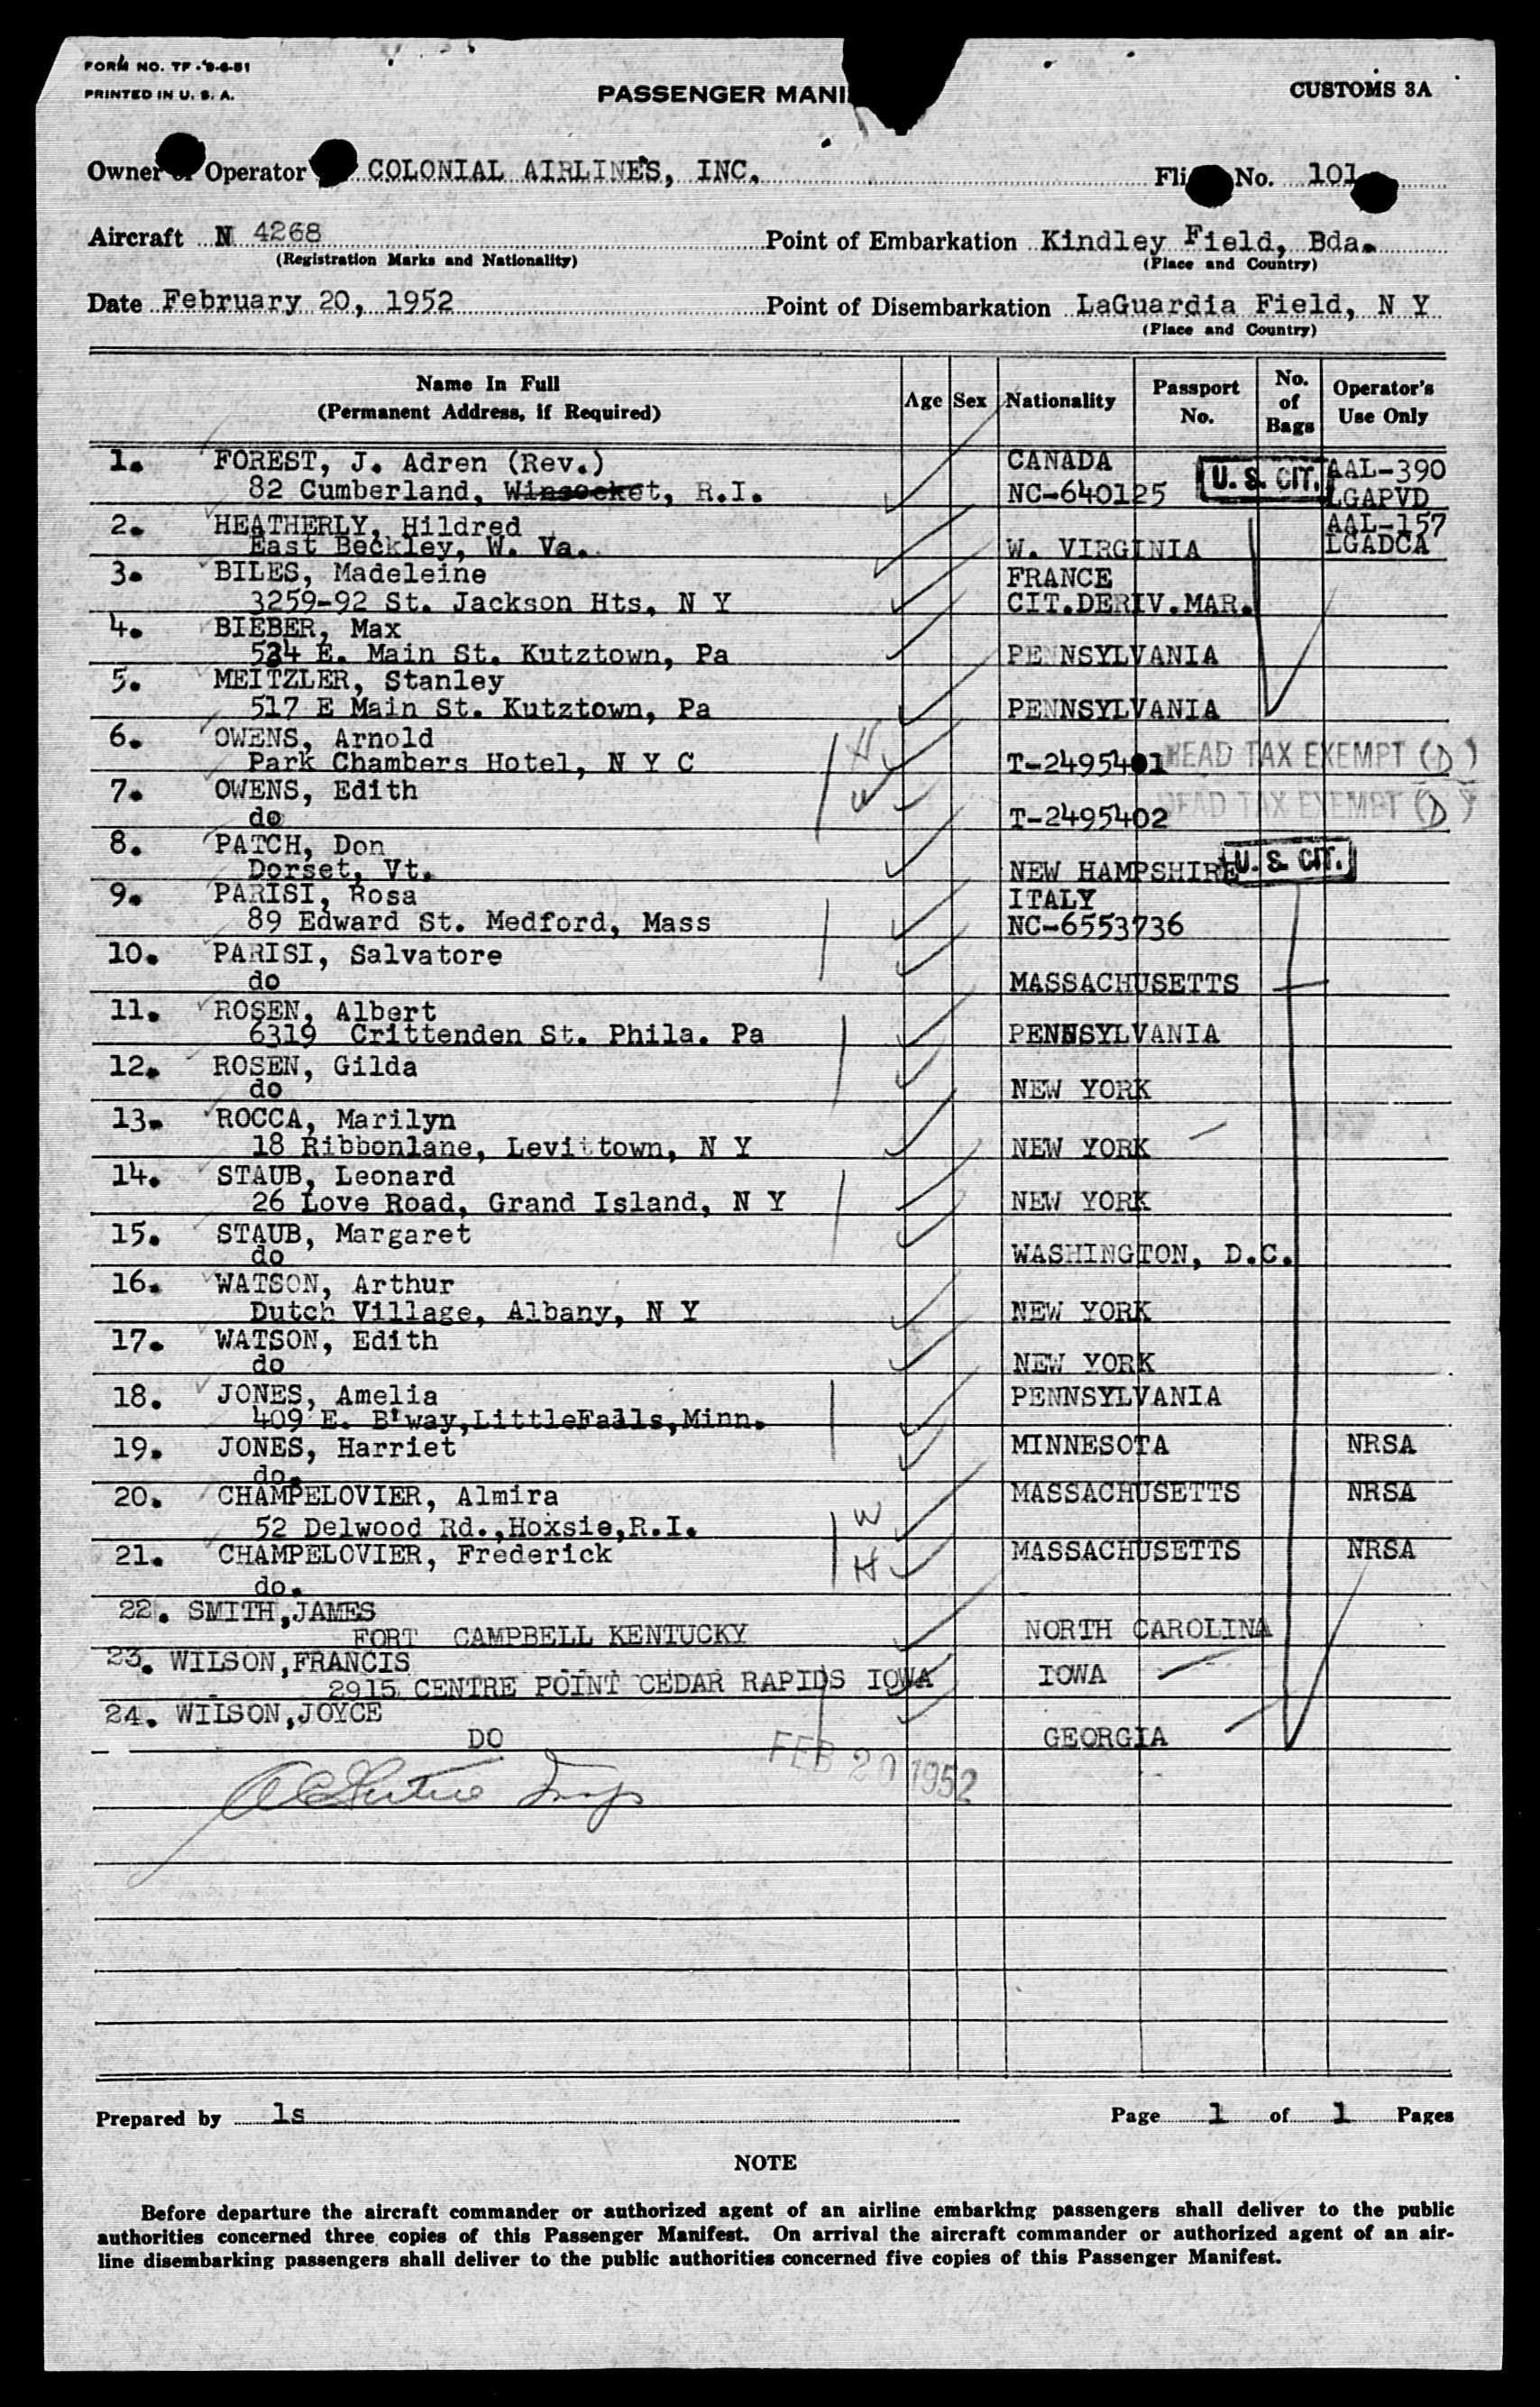 FORM NO. TF-9-6-51
PRINTED IN U. S. A.
PASSENGER MANI
CUSTOMS 3A
Owner or Operator COLONIAL AIRLINES, INC. Fli No. 101
Aircraft N 4268 Point of Embarkation Kindley Field, Bda.
(Registration Marks and Nationality) (Place and Country)
Date February 20, 1952 Point of Disembarkation LaGuardia Field, N Y
(Place and Country)
Name In Full
(Permanent Address, if Required)
Age Sex Nationality Passport No. No. of Bags Operator's Use Only
1. FOREST, J. Adren (Rev.) CANADA U. S. CIT. AAL-390
82 Cumberland, Winsocket, R.I. NC-640125 LGAPVD
2. HEATHERLY, Hildred AAL-157
East Beckley, W. Va. W. VIRGINIA LGADCA
3. BILES, Madeleine FRANCE
3259-92 St. Jackson Hts, N Y CIT.DERIV.MAR.
4. BIEBER, Max
534 E. Main St. Kutztown, Pa PENNSYLVANIA
5. MEITZLER, Stanley
517 E Main St. Kutztown, Pa PENNSYLVANIA
6. OWENS, Arnold H
Park Chambers Hotel, N Y C T-2495401 HEAD TAX EXEMPT (D)
7. OWENS, Edith W
do T-2495402 HEAD TAX EXEMPT (D)
8. PATCH, Don
Dorset, Vt. NEW HAMPSHIRE U. S. CIT.
9. PARISI, Rosa ITALY
89 Edward St. Medford, Mass NC-6553736
10. PARISI, Salvatore
do MASSACHUSETTS
11. ROSEN, Albert
6319 Crittenden St. Phila. Pa PENNSYLVANIA
12. ROSEN, Gilda
do NEW YORK
13. ROCCA, Marilyn
18 Ribbonlane, Levittown, N Y NEW YORK
14. STAUB, Leonard
26 Love Road, Grand Island, N Y NEW YORK
15. STAUB, Margaret
do WASHINGTON, D.C.
16. WATSON, Arthur
Dutch Village, Albany, N Y NEW YORK
17. WATSON, Edith
do NEW YORK
18. JONES, Amelia PENNSYLVANIA
409 E. B'way,LittleFalls,Minn.
19. JONES, Harriet MINNESOTA NRSA
do.
20. CHAMPELOVIER, Almira W MASSACHUSETTS NRSA
52 Delwood Rd.,Hoxsie,R.I.
21. CHAMPELOVIER, Frederick H MASSACHUSETTS NRSA
do.
22. SMITH,JAMES
FORT CAMPBELL KENTUCKY NORTH CAROLINA
23. WILSON,FRANCIS
2915 CENTRE POINT CEDAR RAPIDS IOWA IOWA
24. WILSON,JOYCE
DO GEORGIA
FEB 20 1952
Prepared by ls Page 1 of 1 Pages
NOTE
Before departure the aircraft commander or authorized agent of an airline embarking passengers shall deliver to the public
authorities concerned three copies of this Passenger Manifest. On arrival the aircraft commander or authorized agent of an air-
line disembarking passengers shall deliver to the public authorities concerned five copies of this Passenger Manifest.